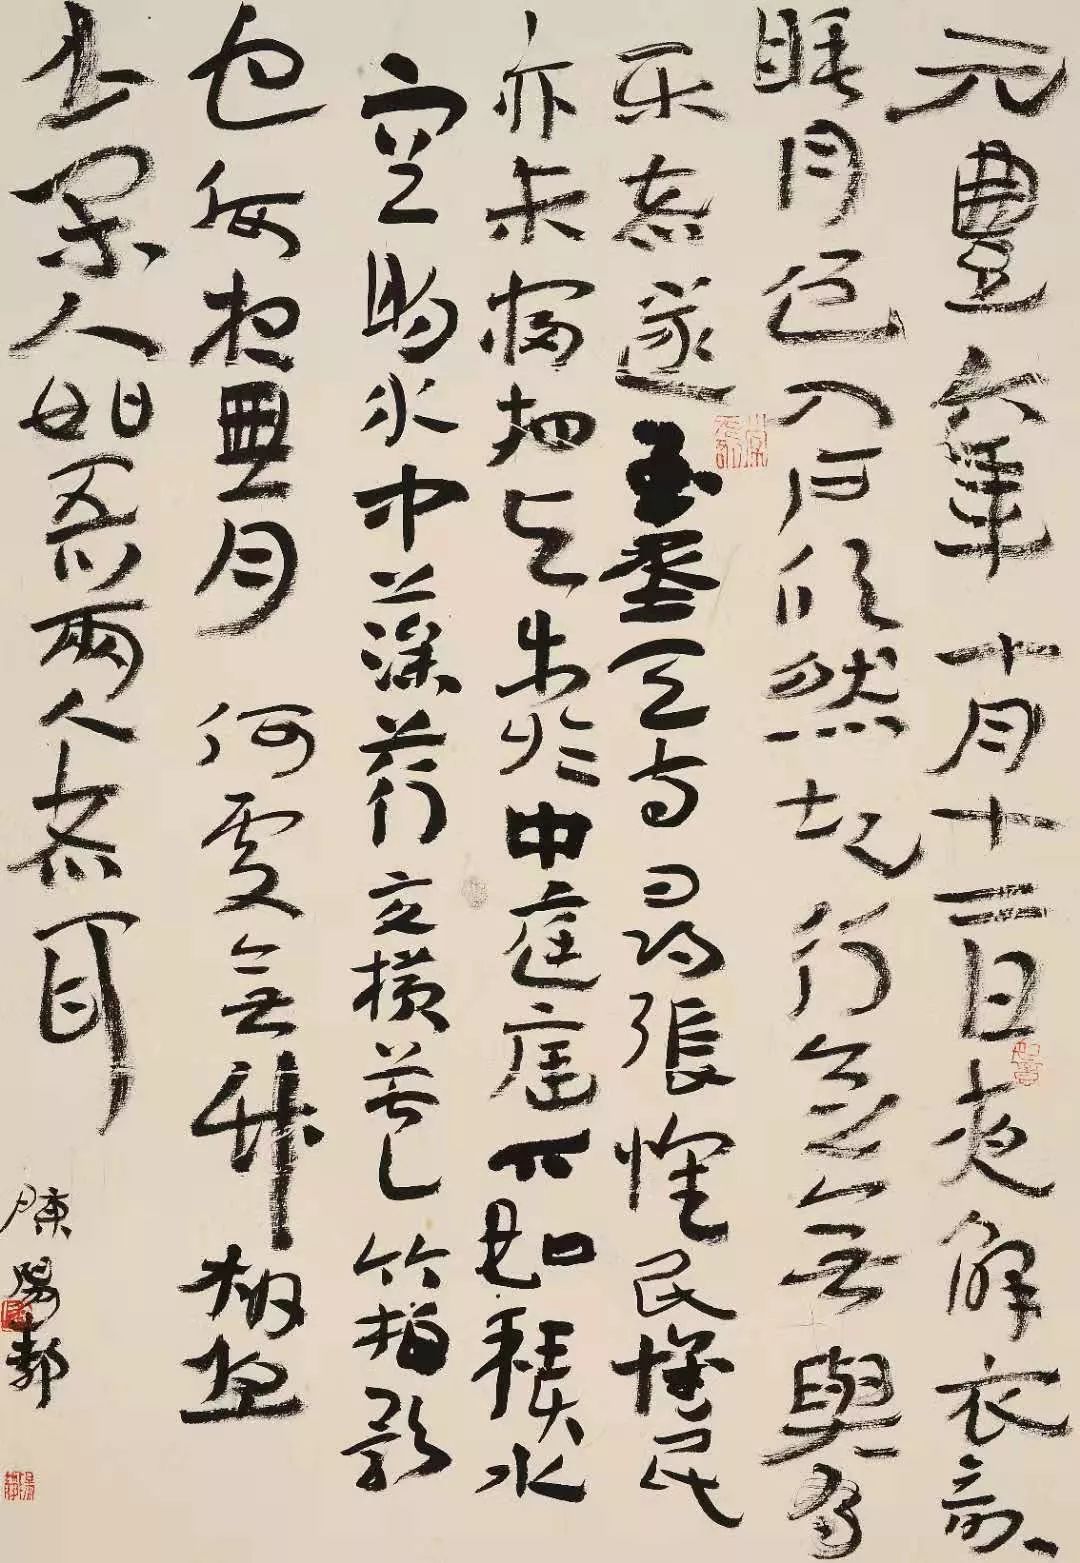 元豐六年十月十二日夜解衣欲
睡月色入戶欣然起行念無與為
樂者遂至承天寺尋張懷民懷民
亦未寢相与步於中庭庭下如積水
空明水中藻荇交橫蓋竹柏影
也何夜無月何處無竹柏但
少閑人如吾兩人者耳
陳陽靜